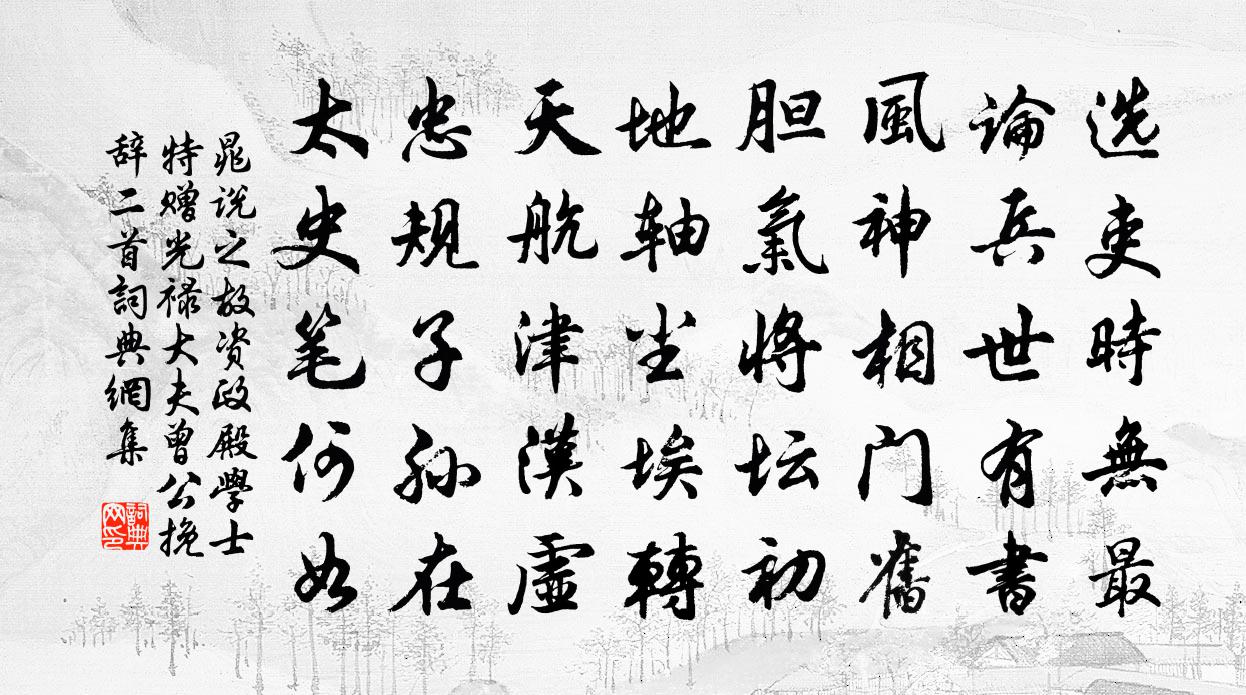 选吏時無最
論兵世有書
風神相门舊
胆氣將坛初
地轴尘埃轉
天航津漢虛
忠规子孙在
太史笔何如
晁说之故资政殿學士
特赠光禄大夫曾公挽
辞二首詞典網集
詞典
网印